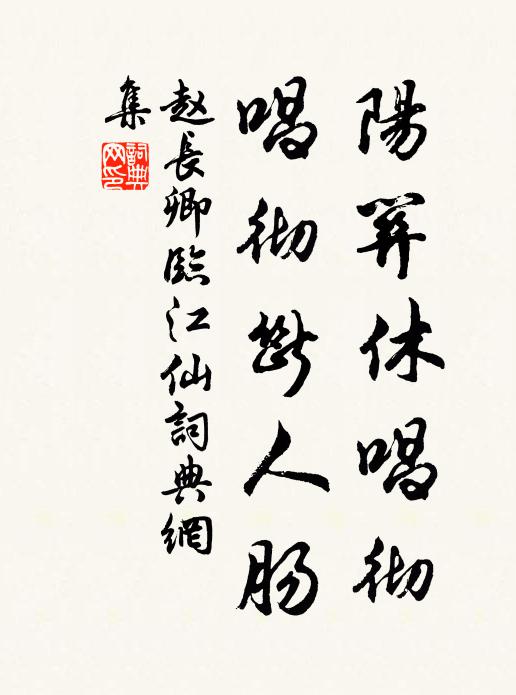 陽關休唱彻
唱彻斷人肠
赵長卿臨江仙詞典網
集
詞典
网印